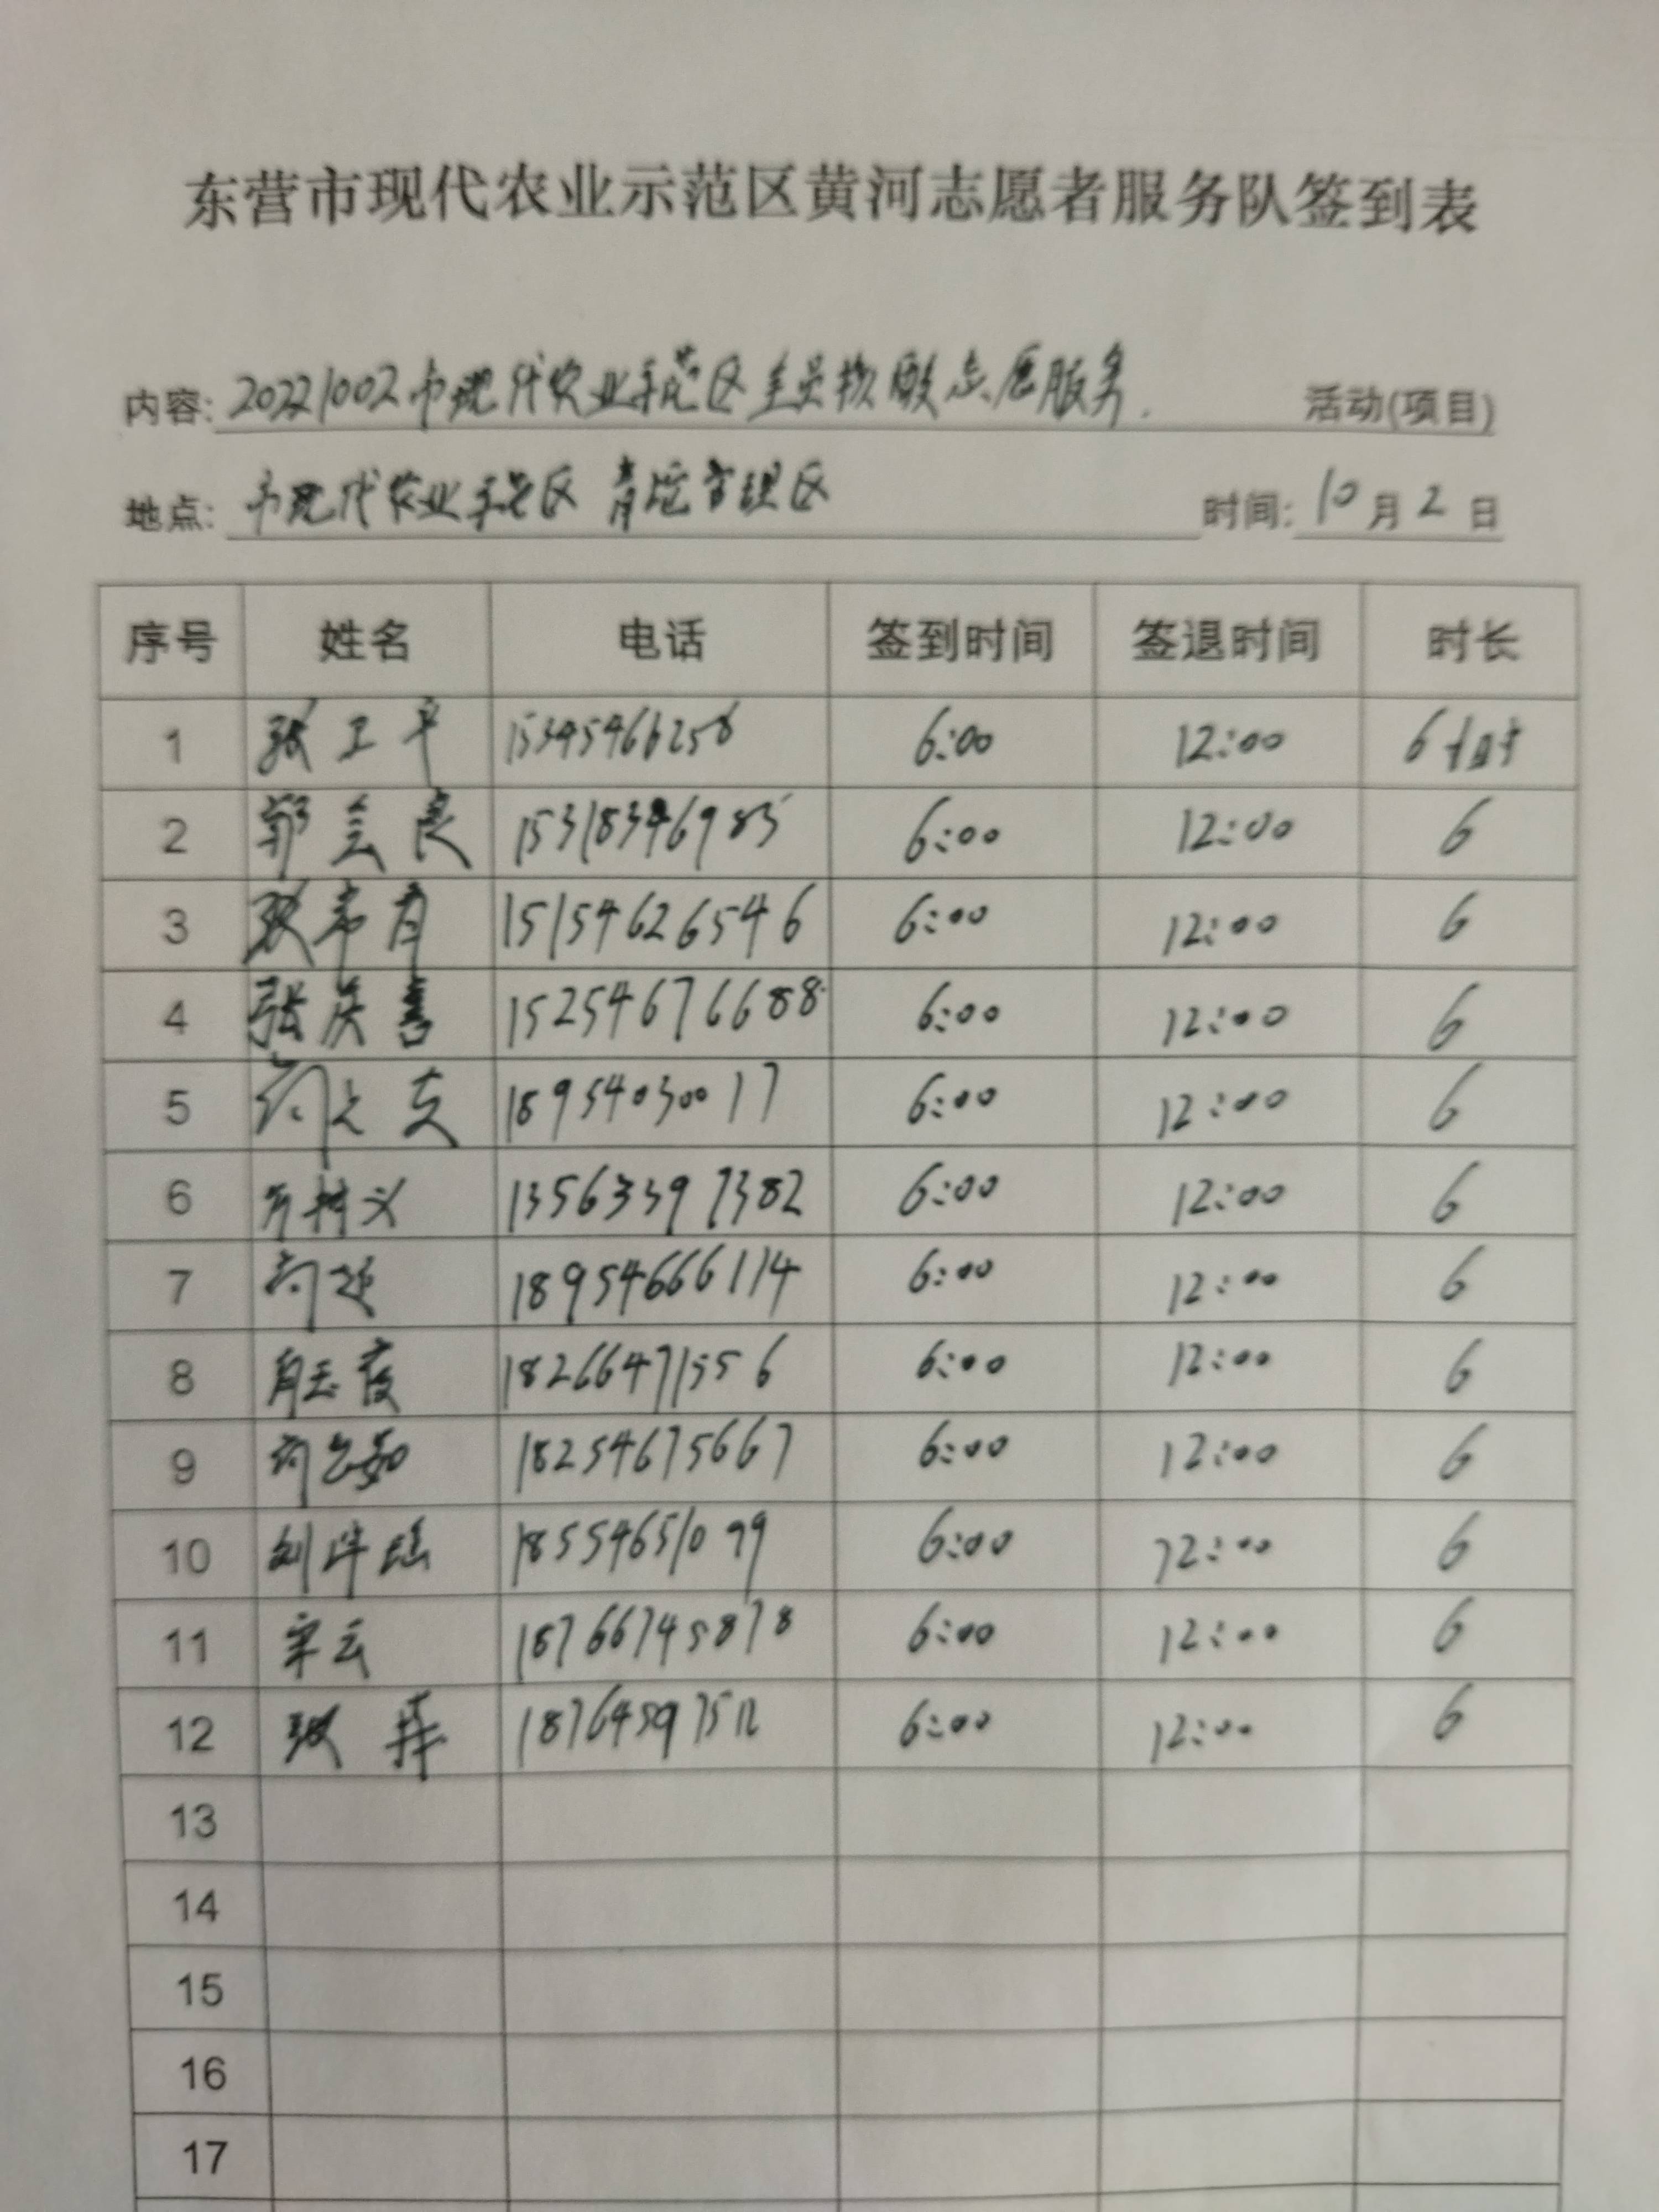 东营市现代农业示范区黄河志愿者服务队签到表
内容: 20221002市现代农业示范区全员核酸志愿服务. 活动(项目)
地点: 市现代农业示范区 青坨管理区 时间: 10月2日
序号 姓名 电话 签到时间 签退时间 时长
1 张卫平 15345466258 6:00 12:00 6小时
2 郭会良 15318346983 6:00 12:00 6
3 15154626546 6:00 12:00 6
4 张庆善 15254676688 6:00 12:00 6
5 18954030017 6:00 12:00 6
6 13563397382 6:00 12:00 6
7 18954666114 6:00 12:00 6
8 18266471556 6:00 12:00 6
9 18254675667 6:00 12:00 6
10 18554651099 6:00 12:00 6
11 宋云 18766745878 6:00 12:00 6
12 张 18764597512 6:00 12:00 6
13
14
15
16
17